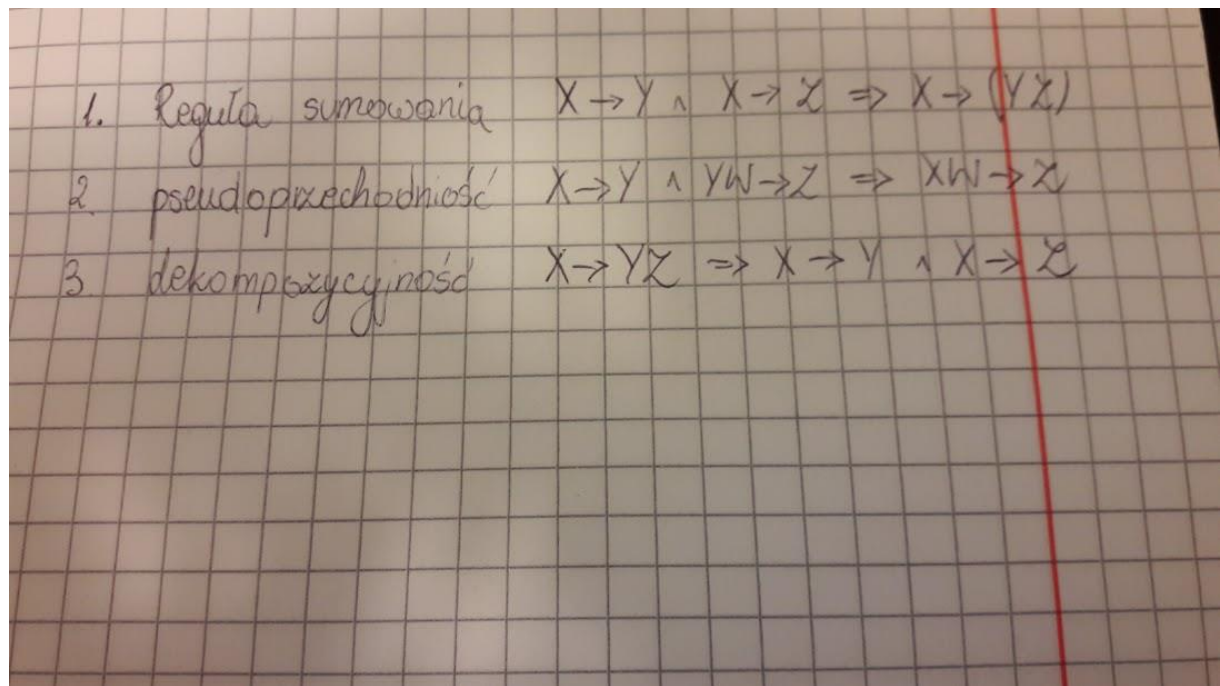 1. Reguła sumowania X → Y ∧ X → Z ⇒ X → (YZ)
2. pseudoprzechodniość X → Y ∧ YW → Z ⇒ XW → Z
3. dekompozycyjność X → YZ ⇒ X → Y ∧ X → Z